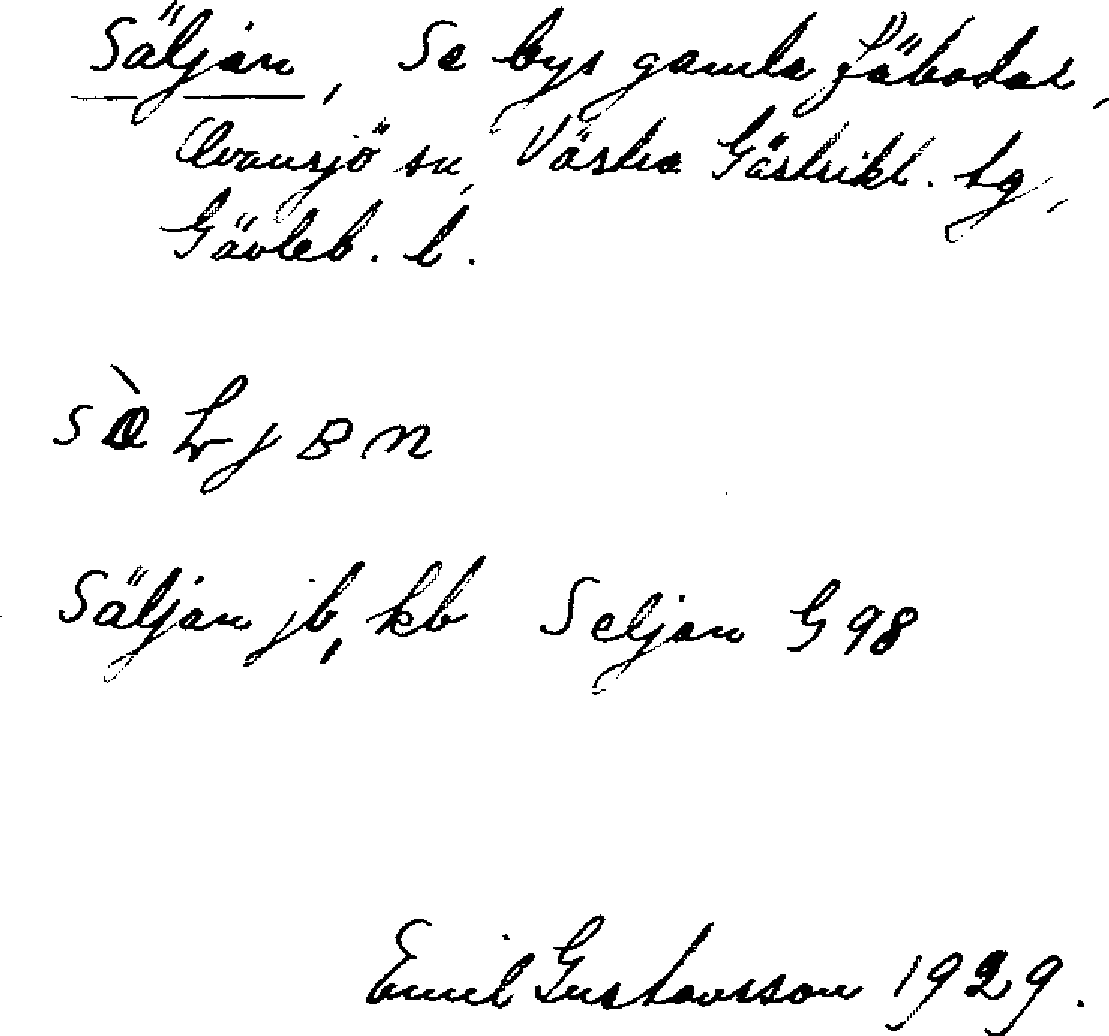 Säljan, Se bys gamla fäbodar,
Ovansjö sn, Västra Gästrikl. tg,
Gävleb. l.
Säljan jb, kb Seljan G 98
Emil Gustavsson 1929.